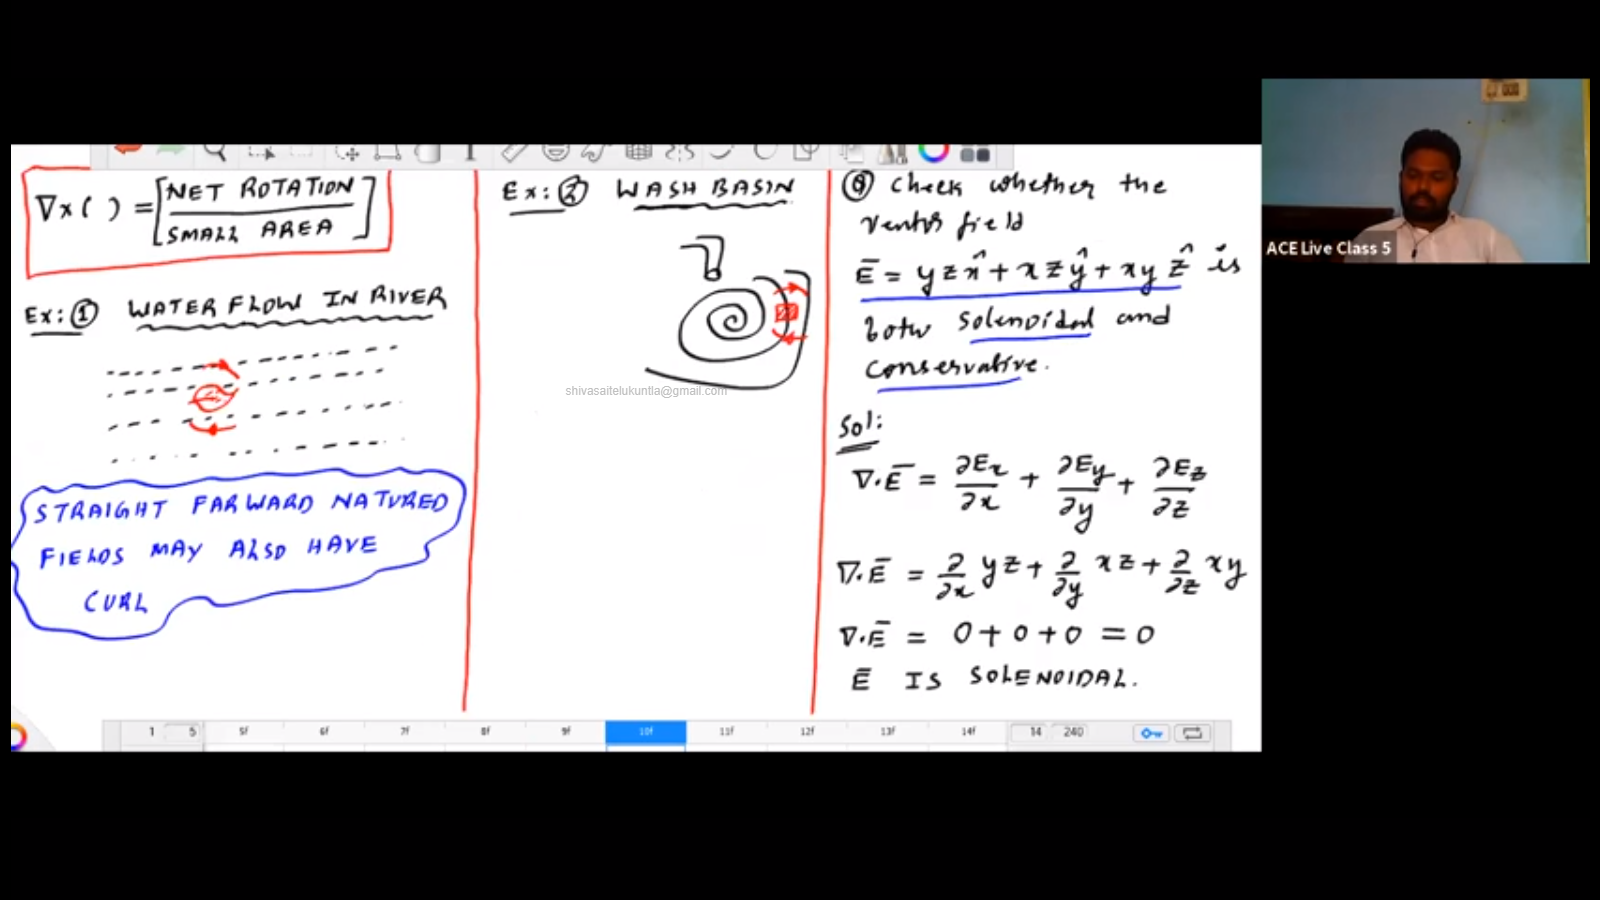 ∇x( ) = [NET ROTATION / SMALL AREA]
Ex: ① WATER FLOW IN RIVER
STRAIGHT FARWARD NATURED
FIELDS MAY ALSO HAVE
CURL
Ex: ② WASH BASIN
shivasaitelukuntla@gmail.com
Q Check whether the
vector field
Ē = yz x̂ + xz ŷ + xy ẑ is
both solenoidal and
conservative.
Sol:
∇.Ē = ∂Ex/∂x + ∂Ey/∂y + ∂Ez/∂z
∇.Ē = ∂/∂x yz + ∂/∂y xz + ∂/∂z xy
∇.Ē = 0 + 0 + 0 = 0
Ē IS SOLENOIDAL.
1 5 5f 6f 7f 8f 9f 10f 11f 12f 13f 14f 14 240
ACE Live Class 5